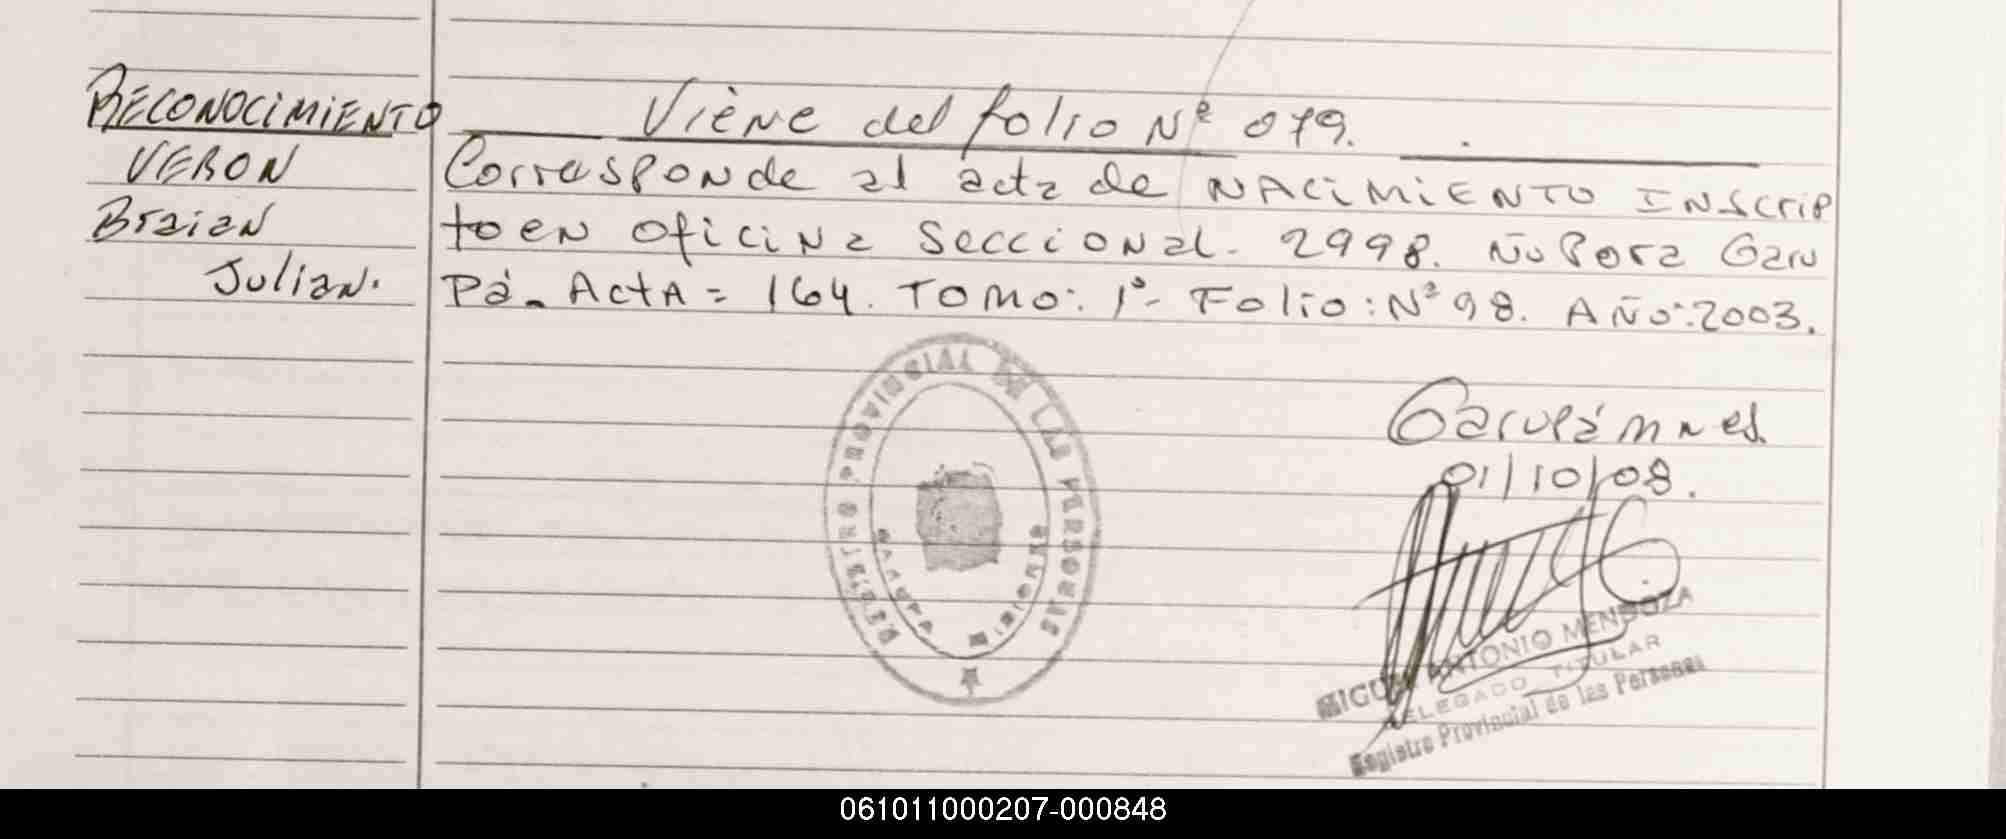 RECONOCIMIENTO
VERON
Braian
Julian.
Viene del folio Nº 079. .
Corresponde al acta de NACIMIENTO INScrip
to en oficina Seccional. 2998. Ñu Pora Garu
Pá. ActA = 164. TOMO: 1º- Folio: Nº 98. AÑo: 2003.
Garupá mnes.
01/10/08.
REGISTRO PROVINCIAL DE LAS PERSONAS
GARUPA
MISIONES
MIGUEL ANTONIO MENDOZA
DELEGADO TITULAR
Registro Provincial de las Personas
061011000207-000848